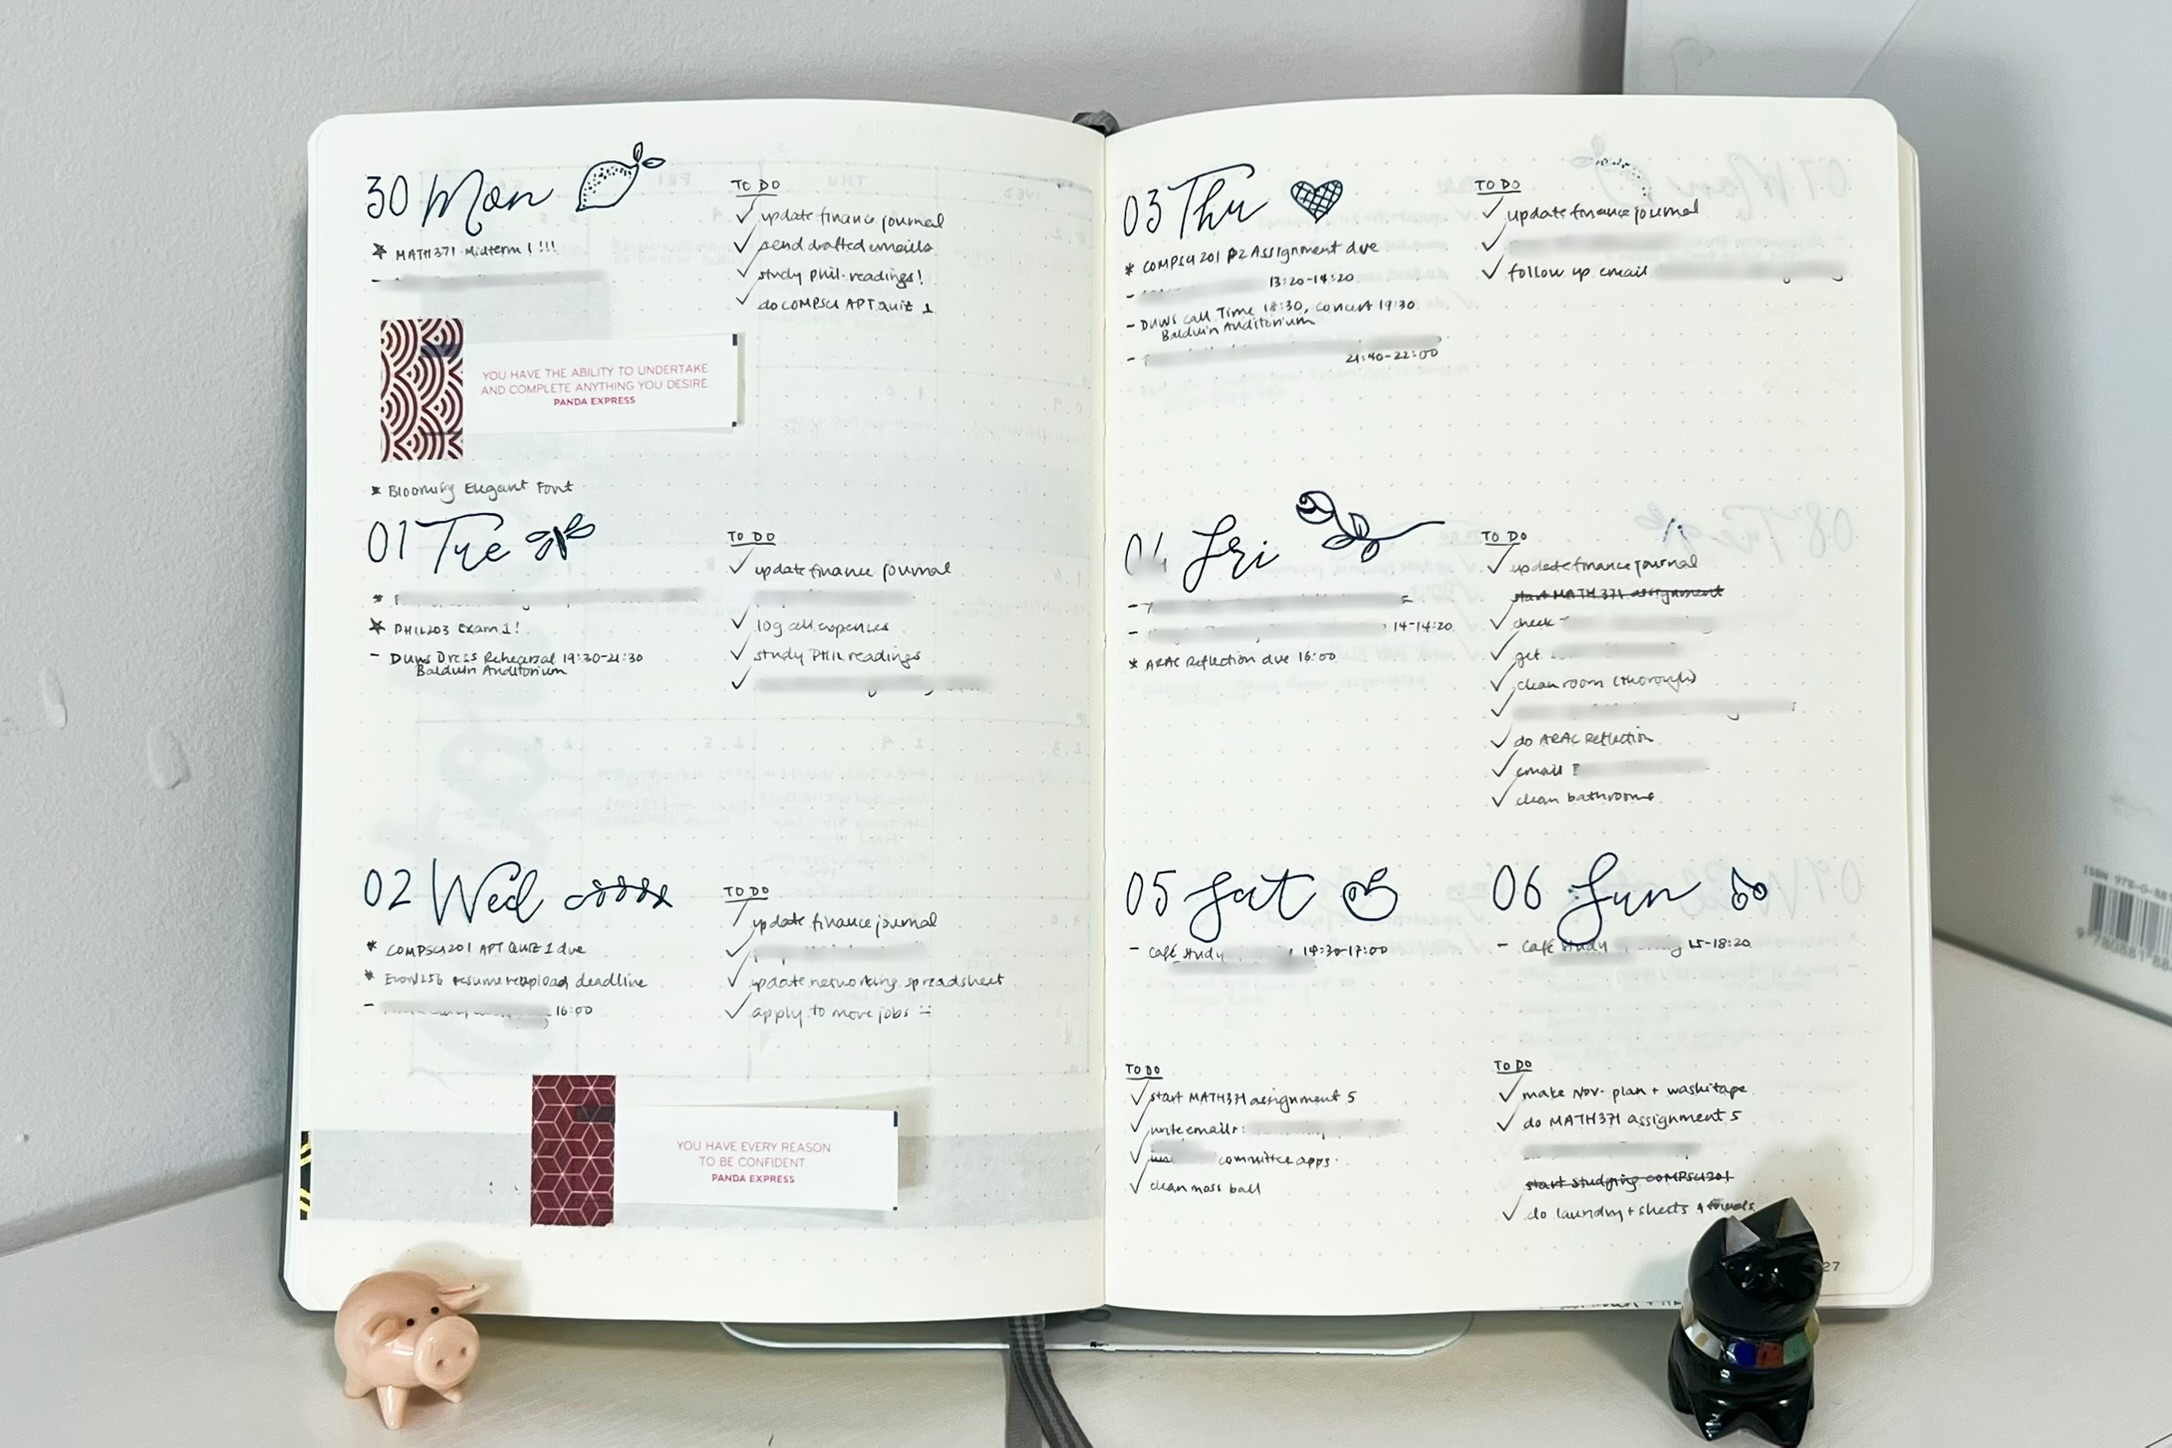 30 Mon
* MATH371 Midterm 1 !!!
-
TO DO
✓ update finance journal
✓ send drafted emails
✓ study phil. readings!
✓ do COMPSCI APT Quiz 1
YOU HAVE THE ABILITY TO UNDERTAKE
AND COMPLETE ANYTHING YOU DESIRE.
PANDA EXPRESS
* Blooming Elegant Font
01 Tue
*
* PHIL203 Exam 1!
- DUWS Dress Rehearsal 19:30-21:30
Balduin Auditorium
TO DO
✓ update finance journal
✓
✓ log all expenses
✓ study PHIL readings
✓
02 Wed
* COMPSCI201 APT QUIZ 1 due
* Econ256 resume reupload deadline
- 16:00
TO DO
update finance journal
✓
✓ update networking spreadsheet
✓ apply to more jobs
YOU HAVE EVERY REASON
TO BE CONFIDENT.
PANDA EXPRESS
03 Thu
* COMPSCI201 P2 Assignment due
- 13:20-14:20
- DUWS call Time 18:30, concert 19:30
Balduin Auditorium
- 21:40-22:00
TO DO
✓ update finance journal
✓
✓ follow up email
04 Fri
-
- 14-14:20
* ARAC Reflection due 16:00
TO DO
✓ update finance journal
start MATH371 assignment
✓ check -
✓ get
✓ clean room (thorough)
✓
✓ do ARAC Reflection
✓ email
✓ clean bathrooms
05 Sat
- Café study 14:30-17:00
TO DO
✓ start MATH371 assignment 5
✓ write emails:
✓ committee apps.
✓ clean moss ball
06 Sun
- Café study 15-18:20
TO DO
✓ make Nov. plan + washi tape
✓ do MATH371 assignment 5
start studying COMPSCI201
✓ do laundry + sheets + towels
27